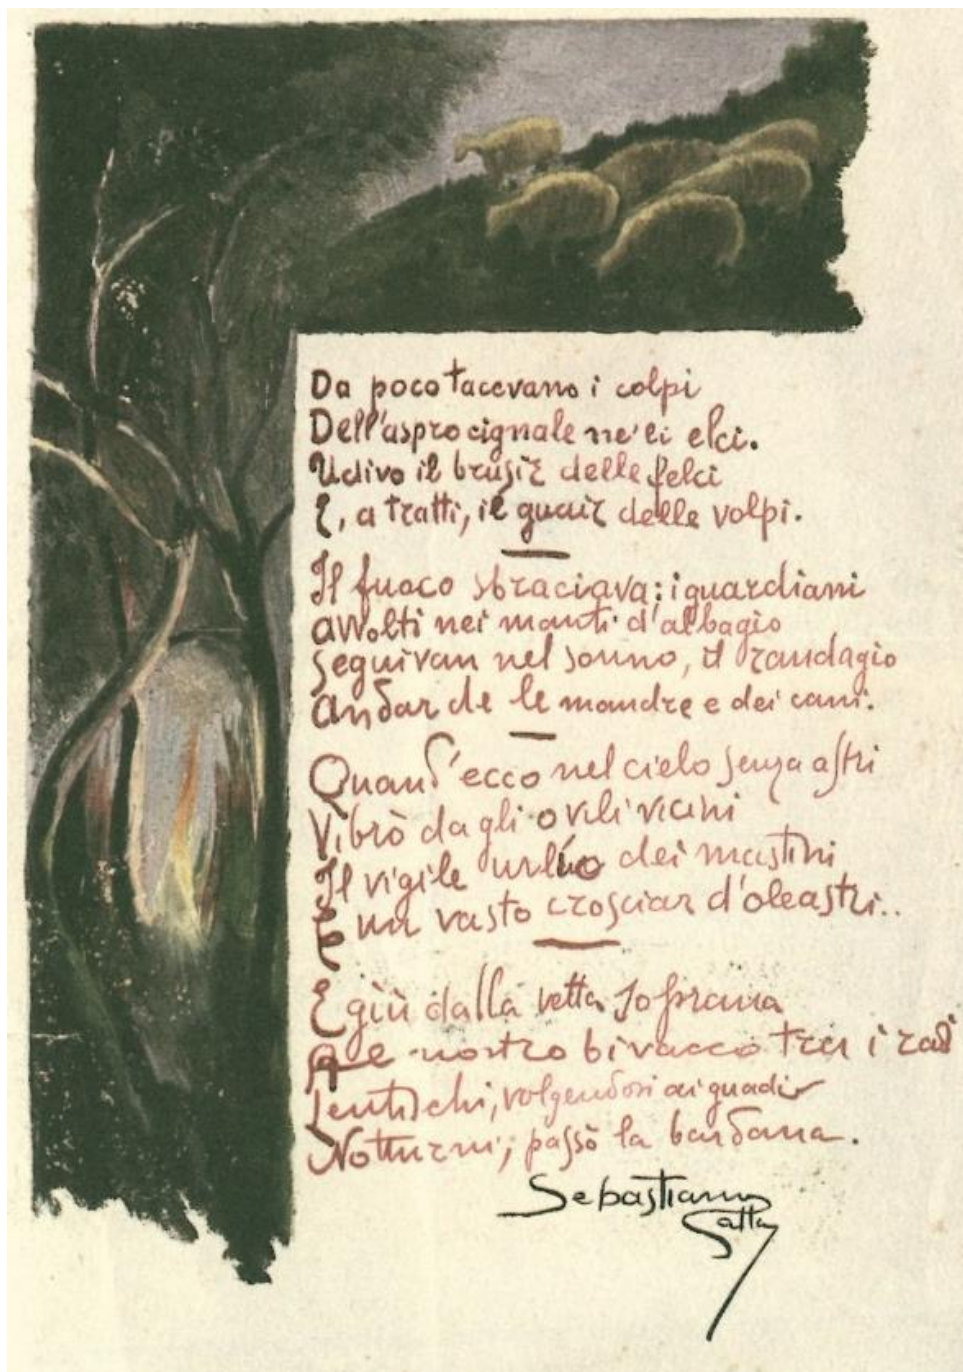 Da poco tacevano i colpi
Dell'aspro cignale ne' li elci.
Udivo il brusir delle felci
E, a tratti, il guair delle volpi.
Il fuoco sbraciava: i guardiani
avvolti nei manti d'albagio
Seguivan nel sonno, il randagio
Andar de le mandre e dei cani.
Quand'ecco nel cielo senza astri
Vibrò dagli ovili vicini
Il vigile urlio dei mastini
E un vasto crosciar d'oleastri..
E giù dalla vetta soprana
Al nostro bivacco tra i radi
Lentischi, volgendosi ai guadi
Notturni, passò la bardana.
Sebastiano
Satta